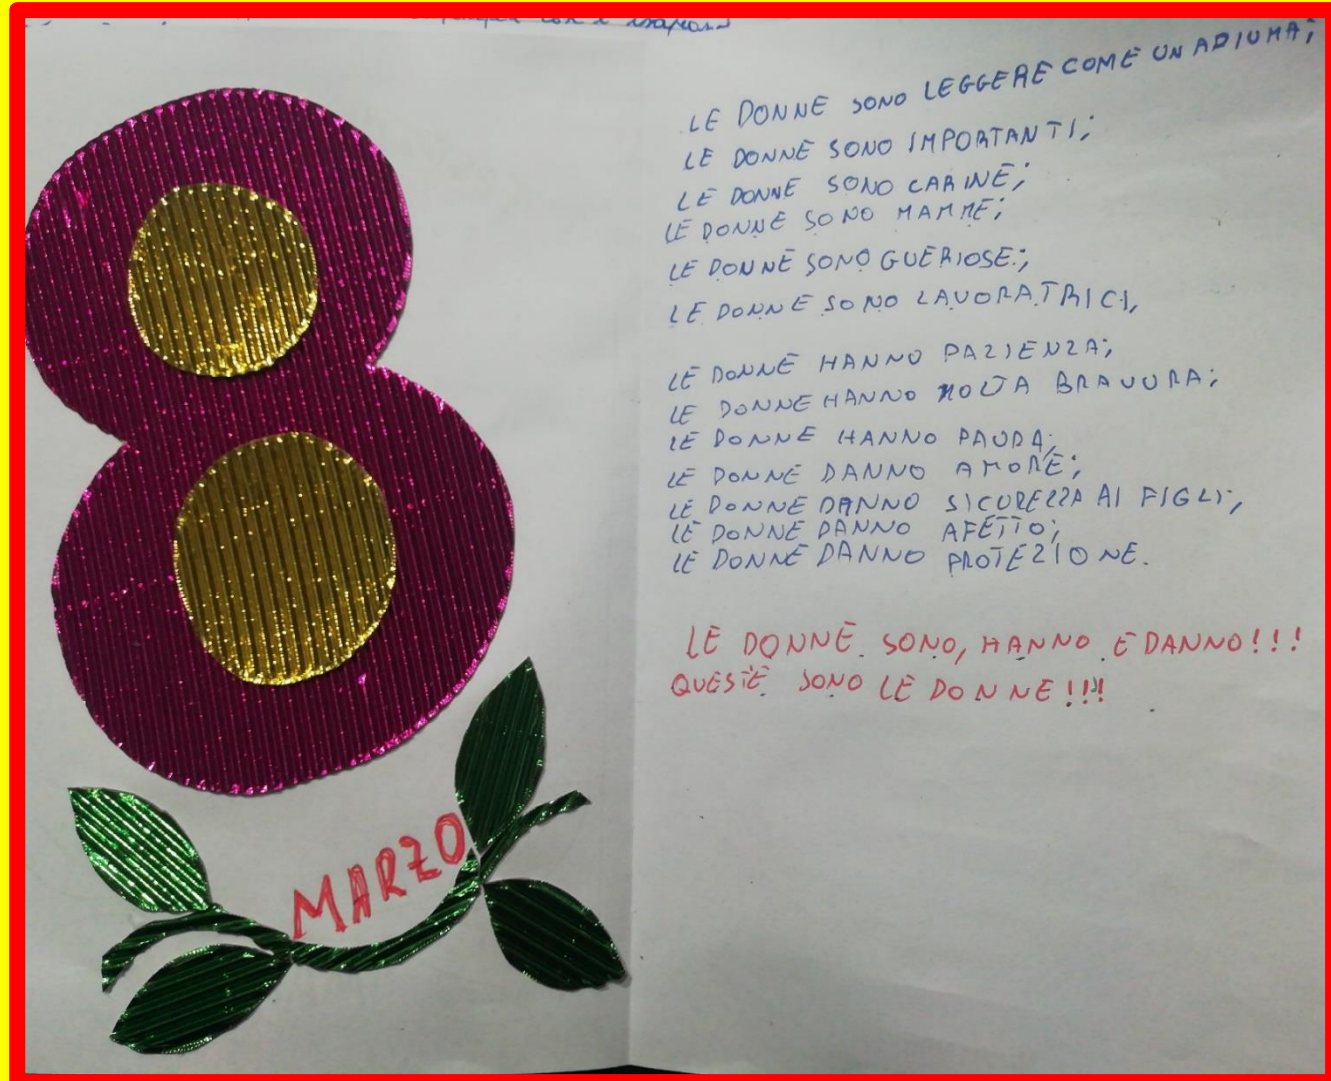 con i
MARZO
LE DONNE SONO LEGGERE COME UN ADIUMA;
LE DONNE SONO IMPORTANTI;
LE DONNE SONO CARINE;
LE DONNE SONO MAMME;
LE DONNE SONO GUERIOSE;
LE DONNE SONO LAVORATRICI,
LE DONNE HANNO PAZIENZA;
LE DONNE HANNO BRAVURA;
LE DONNE HANNO
LE DONNE DANNO AMORE;
LE DONNE DANNO SICUREZZA AI FIGLI;
LE DONNE DANNO AFETTO;
LE DONNE DANNO PROTEZIONE.
LE DONNE SONO, HANNO E DANNO!!!
QUESTE SONO LE DONNE!!!